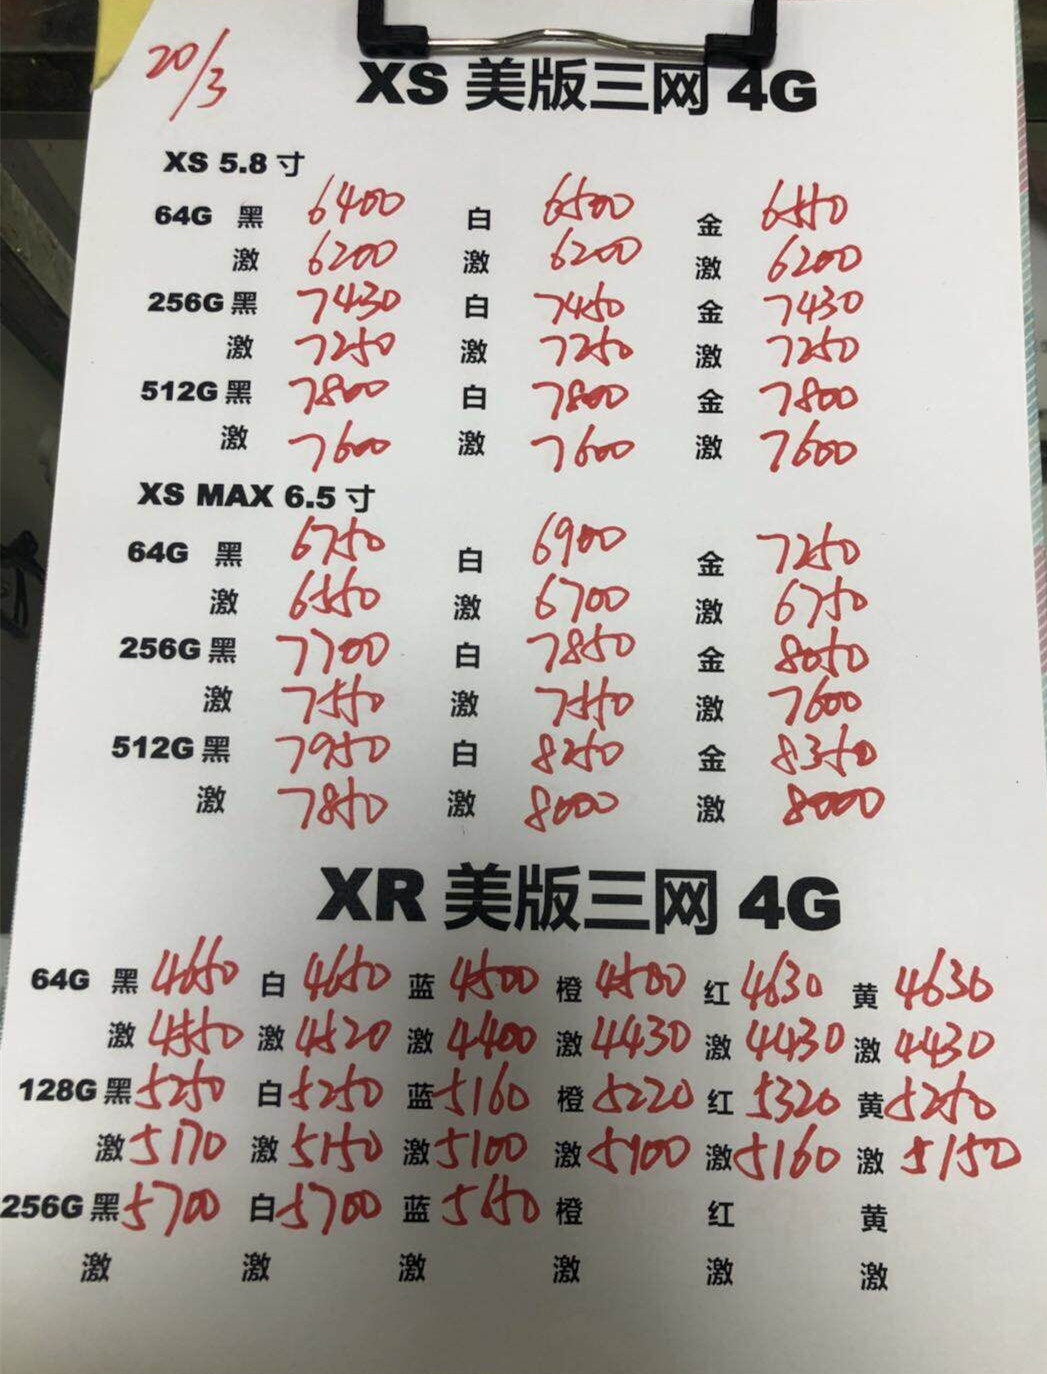 20/3
XS 美版三网 4G
XS 5.8 寸
64G 黑 6400 白 6500 金 6550
激 6200 激 6200 激 6200
256G 黑 7430 白 7450 金 7430
激 7250 激 7250 激 7250
512G 黑 7800 白 7800 金 7800
激 7600 激 7600 激 7600
XS MAX 6.5 寸
64G 黑 6750 白 6900 金 7250
激 6550 激 6700 激 6750
256G 黑 7700 白 7850 金 8050
激 7550 激 7550 激 7600
512G 黑 7950 白 8250 金 8350
激 7850 激 8000 激 8000
XR 美版三网 4G
64G 黑 4650 白 4650 蓝 4500 橙 4580 红 4630 黄 4630
激 4550 激 4520 激 4400 激 4430 激 4430 激 4430
128G 黑 5250 白 5250 蓝 5160 橙 5220 红 5320 黄 5250
激 5170 激 5150 激 5100 激 激 5160 激 5150
256G 黑 5700 白 5700 蓝 5650 橙 红 黄
激 激 激 激 激 激